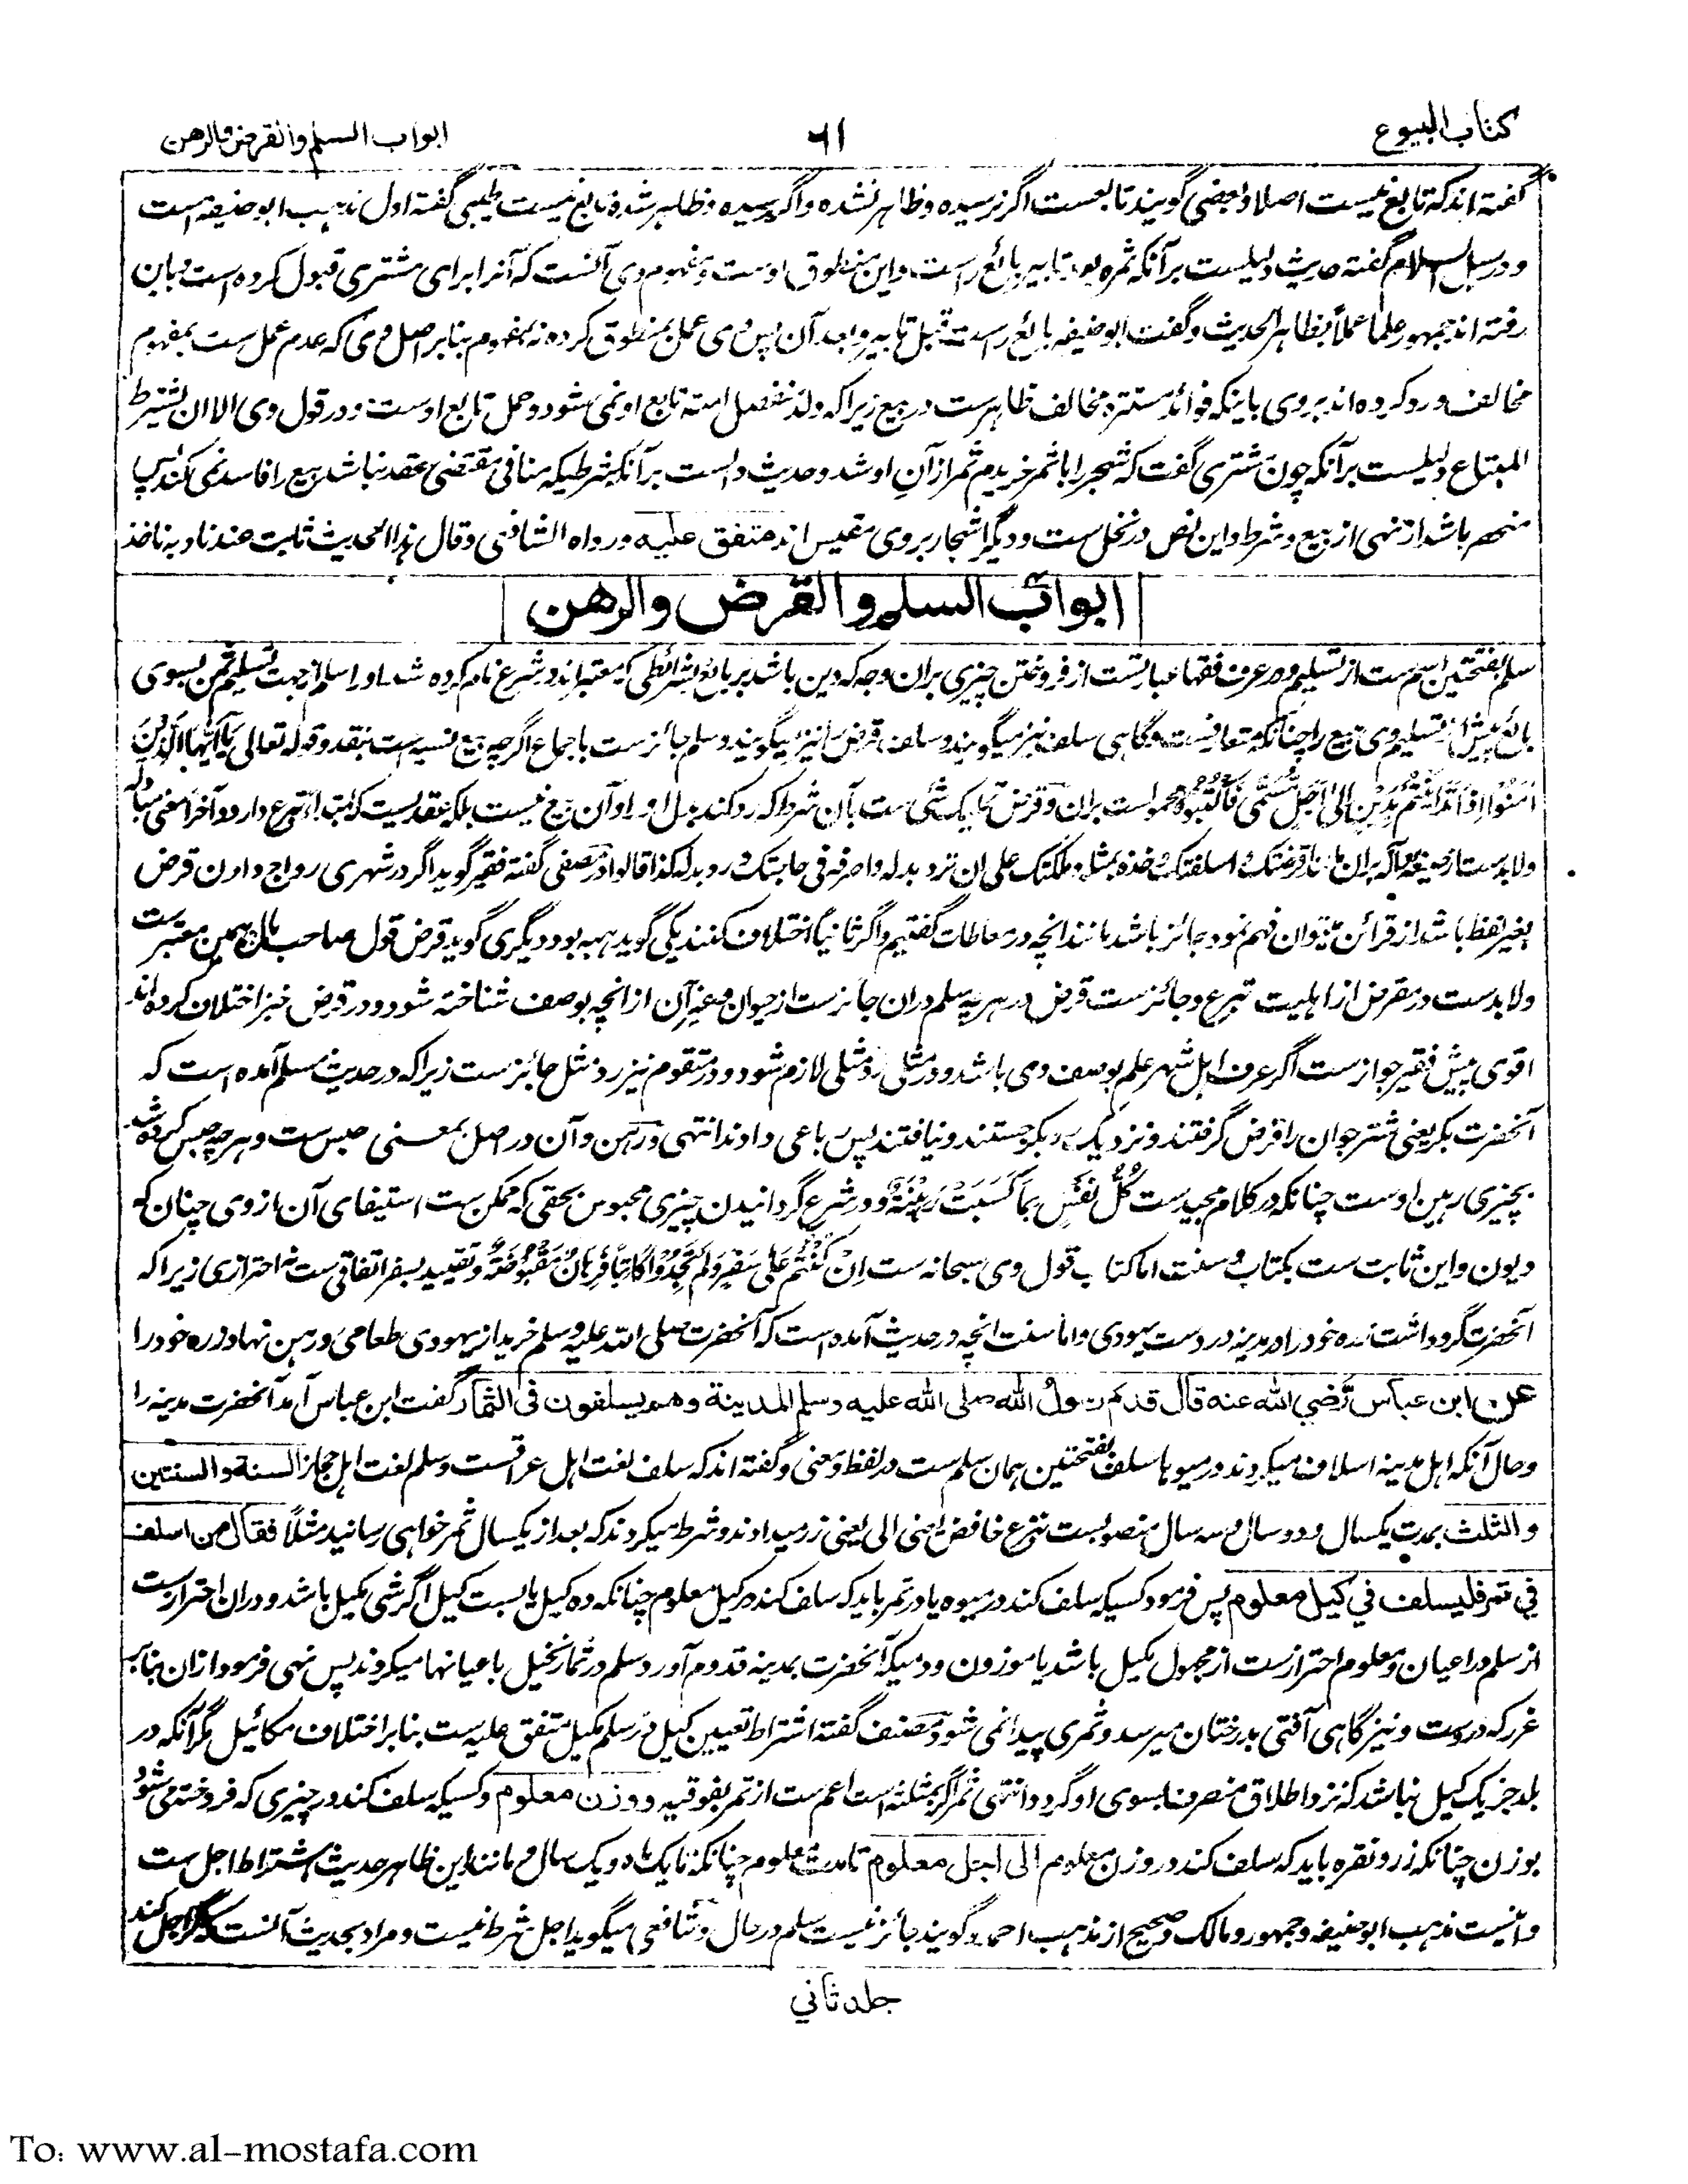 کتاب البیوع
۶۱
ابواب السلم والقرض والرهن
گفته اند که تابع نیست اصلا و بعضی گویند تابعست اگر نرسیده و ظاهر نشده و اگر رسیده و ظاهر شده تابع نیست طیبی گفته اول مذهب ابو حنیفه است
و در سبل السلام گفته حدیث دلیلست بر آنکه ثمره بعد تابیر بائع راست و این منطوق اوست و مفهوم وی آنست که آنرا برای مشتری قبول کرده است و باین
رفته اند جمهور علما عملاً بظاهر الحدیث و گفت ابو حنیفه بائع راست قبل تابیر و بعد آن پس وی عمل بمنطوق کرده نه بمفهوم بنا بر اصل وی که عدم عمل ست بمفهوم
مخالف و رد کرده اند بر وی باینکه فوائد مستتره مخالف ظاهرست در بیع زیرا که ولد منفصل امته تابع او نمی شود و حمل تابع اوست و در قول وی الا ان یشترط
المبتاع دلیلست بر آنکه چون مشتری گفت که شجر را با ثمر خریدم ثمر از آن او شد و حدیث دالست بر آنکه شرطیکه منافی مقتضی عقد نباشد بیع را فاسد نمی کند پس
باشد از نهی از بیع و شرط و این نص در نخل ست و دیگر اشجار بر وی مقیس اند متفق علیه و رواه الشافعی و قال هذا الحدیث ثابت عندنا و به ناخذ
ابواب السلم والقرض والرهن
سلم بفتحتین اسم ست از تسلیم و در عرف فقها عبارتست از فروختن چیزی بران وجه که دین باشد بر بائع بشرائطی که معتبراند در شرع نام کرده شد او را سلم از جهت تسلیم ثمن بسوی
بائع پیش از تسلیم وی مبیع را چنانکه متعارفست و گاهی سلف نیز میگویند و سلف قرض را نیز میگویند و سلم جائزست باجماع اگرچه بیع نسیه است بنقد و قوله تعالی یا ایها الذین
امنوا اذا تداینتم بدین الی اجل مسمی فاکتبوه محمولست بران و قرض تملیک شی ست بآن شرط که رد کند بدل او را و آن بیع نیست بلکه عقدیست که ابتداءً تبرع دارد و آخر معنی مبادله
ولابدست از صیغه دالّه بران مانند اقرضتک و اسلفتک و خذه بمثله و ملکتک علی ان ترد بدله و اصرفه فی حاجتک و رد بدله کذا قالوا در مصفی گفته فقیر گوید اگر در شهری رواج دادن قرض
بغیر لفظ باشد از قرائن بتوان فهم نمود جائز باشد مانند انچه در معاطات گفتیم و اگر ثانیاً اختلاف کنند یکی گوید هبه بود و دیگری گوید قرض قول صاحب مال بیمین معتبرست
ولابدست در مقرض از اهلیت تبرع و جائزست قرض در هر چه سلم دران جائزست از حیوان و غیر آن از انچه بوصف شناخته شود و در قرض خبز اختلاف کرده اند
اقوی پیش فقیر جوازست اگر عرف اهل شهر علم بوصف وی باشد و در مثلی رد مثلی لازم شود و در متقوم نیز رد مثل جائزست زیرا که در حدیث مسلم آمده است که
آنحضرت بکر یعنی شتر جوان را قرض گرفتند و نزدیک رد بکر جستند و نیافتند پس رباعی دادند انتهی و رهن و آن در اصل بمعنی حبس ست و هر چه حبس کرده شد
بچیزی رهین اوست چنانکه در کلام مجیدست کل نفس بما کسبت رهینة و در شرع گردانیدن چیزی محبوس بحقی که ممکن ست استیفای آن از وی چنان که
دیون و این ثابت ست بکتاب و سنت اما کتاب قول وی سبحانه ست ان کنتم علی سفر ولم تجدوا کاتبا فرهان مقبوضة و تقیید بسفر اتفاقی ست نه احترازی زیرا که
آنحضرت گرو داشت زره خود را در مدینه در دست یهودی و اما سنت انچه در حدیث آمده است که آنحضرت صلی الله علیه وسلم خرید از یهودی طعامی و رهن نهاد زره خود را
عن ابن عباس رضی الله عنه قال قدم رسول الله صلی الله علیه وسلم المدینة وهم یسلفون فی الثمار گفت ابن عباس آمد آنحضرت مدینه را
و حال آنکه اهل مدینه اسلاف میکردند در میوها سلف بفتحتین همان سلم ست در لفظ و معنی و گفته اند که سلف لغت اهل عراقست و سلم لغت اهل حجاز السنة والسنتین
والثلث بمدت یکسال و دو سال و سه سال منصوبست بنزع خافض یعنی الی یعنی زر میدادند و شرط میکردند که بعد از یکسال ثمر خواهی رسانید مثلاً فقال من اسلف
فی تمر فلیسلف فی کیل معلوم پس فرمود کسیکه سلف کند در میوه یا در تمر باید که سلف کند در کیل معلوم چنانکه ده کیل یا بیست کیل اگر شی مکیل باشد و دران احترازست
از سلم در اعیان و معلوم احترازست از مجهول مکیل باشد یا موزون و دمیکه آنحضرت بمدینه قدوم آورد سلم در ثمار نخیل باعیانها میکردند پس نهی فرمود ازان بنا بر
غرر که دروست و نیز گاهی آفتی بدرختان میرسد و ثمری پیدا نمی شود مصنف گفته اشتراط تعیین کیل در سلم مکیل متفق علیه ست بنا بر اختلاف مکائیل مگر آنکه در
بلد جز یک کیل نباشد که نزد اطلاق منصرف بسوی او گردد انتهی ثمر اگر بمثلثه است اعم ست از تمر بفوقیه و وزن معلوم و کسیکه سلف کند در چیزی که فروخته می شود
بوزن چنانکه زر و نقره باید که سلف کند در وزن معلوم الی اجل معلوم تا مدت معلوم چنانکه تا یک ماه و یک سال و مانند این ظاهر حدیث اشتراط اجل ست
و اینست مذهب ابو حنیفه و جمهور و مالک و صحیح از مذهب احمد و گویند جائز نیست سلم در حال و شافعی میگوید اجل شرط نیست و مراد بحدیث آنست که اگر اجل کند
جلد ثانی
To: www.al-mostafa.com